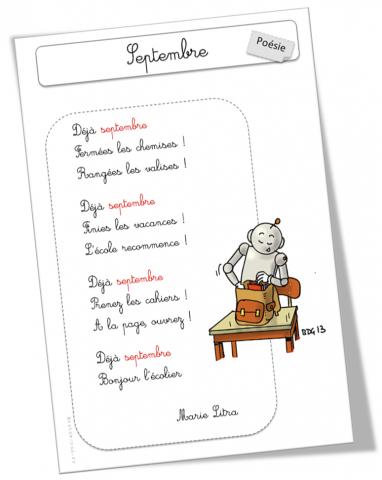 Septembre
Poésie
Déjà septembre
Fermées les chemises !
Rangées les valises !
Déjà septembre
Finies les vacances !
L'école recommence !
Déjà septembre
Prenez les cahiers !
A la page, ouvrez !
Déjà septembre
Bonjour l'écolier
Marie Litra
BDG 13